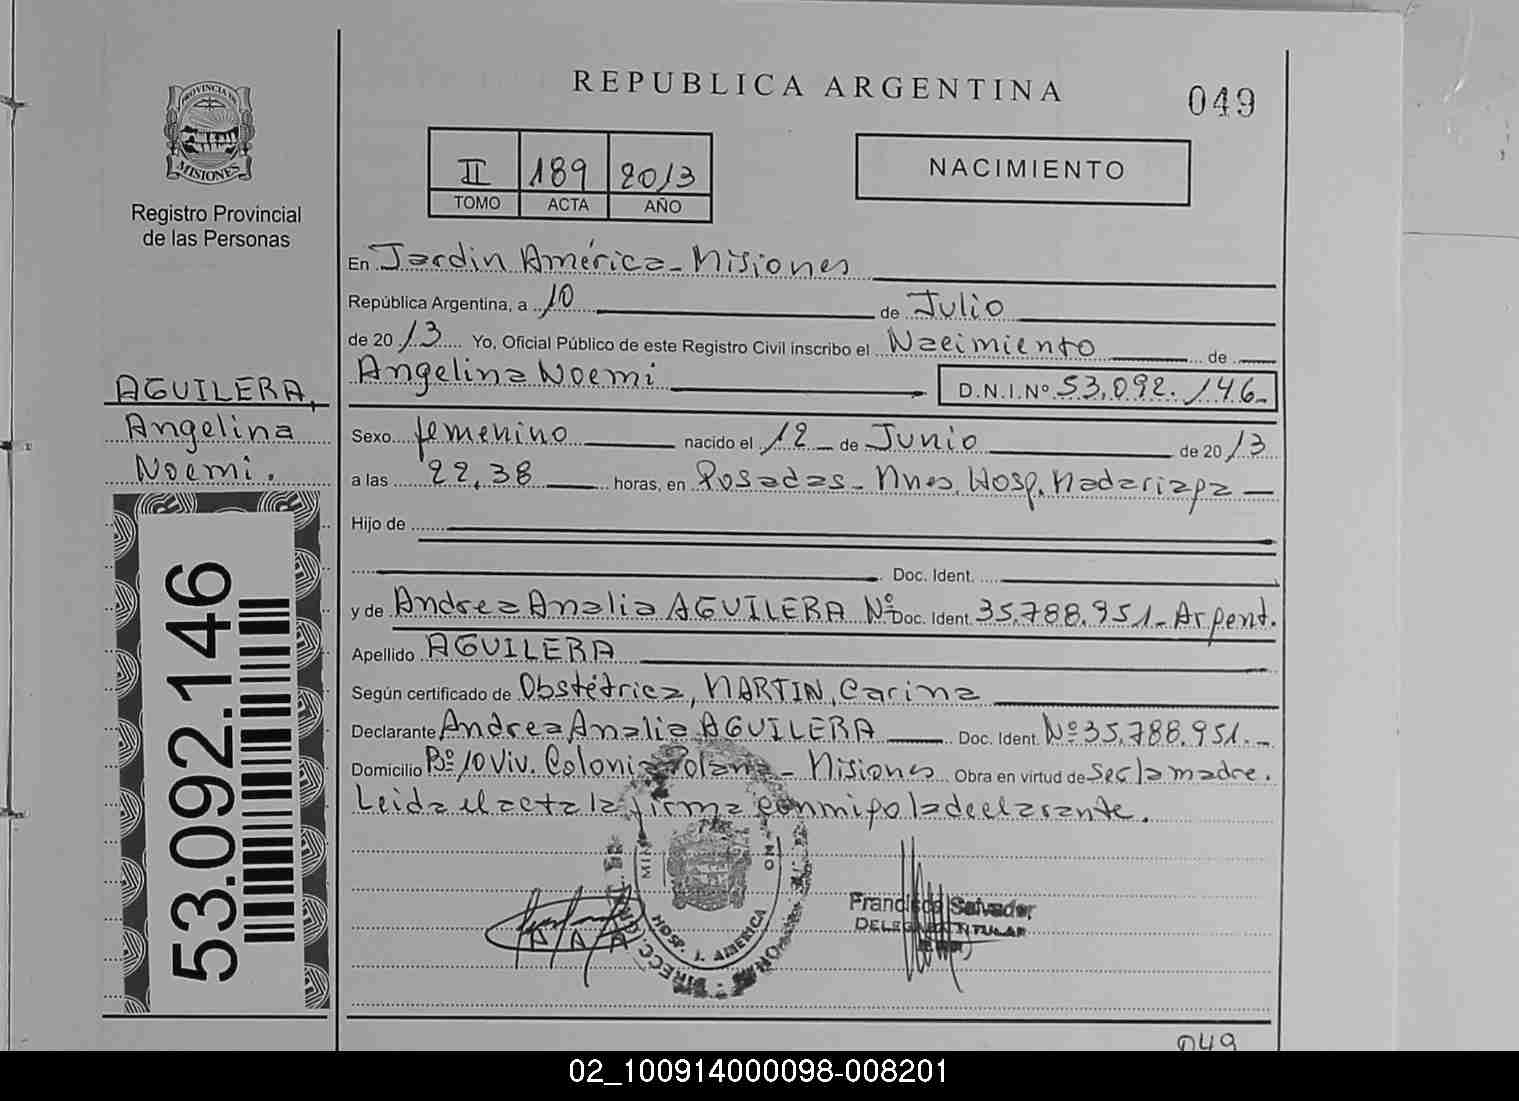 REPUBLICA ARGENTINA
049
PROVINCIA DE
MISIONES
Registro Provincial
de las Personas
II 189 2013
TOMO ACTA AÑO
NACIMIENTO
En Jardin América - Misiones
República Argentina, a 10 de Julio
de 20 13 Yo, Oficial Público de este Registro Civil inscribo el Nacimiento de
Angelina Noemi D.N.I.Nº 53.092.146-
AGUILERA,
Angelina
Noemi.
53.092.146
Sexo femenino nacido el 12 de Junio de 20 13
a las 22,38 horas, en Posadas - Mnes, Hosp. Madariaga
Hijo de
Doc. Ident.
y de Andrea Analia AGUILERA Nº Doc. Ident. 35.788.951 - Argent.
Apellido AGUILERA
Según certificado de Obstétrica, MARTIN, Carina
Declarante Andrea Analia AGUILERA Doc. Ident. Nº 35.788.951.-
Domicilio Bº 10 Viv. Colonia Polana - Misiones Obra en virtud de ser la madre.
Leida el acta la firma conmigo la declarante.
HOSP. J. AMERICA
A A A
Francisco Salvador
DELEGADO TITULAR
049
02_100914000098-008201